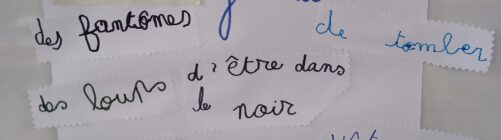 des fantômes
de tomber
des loups
d'être dans
le noir